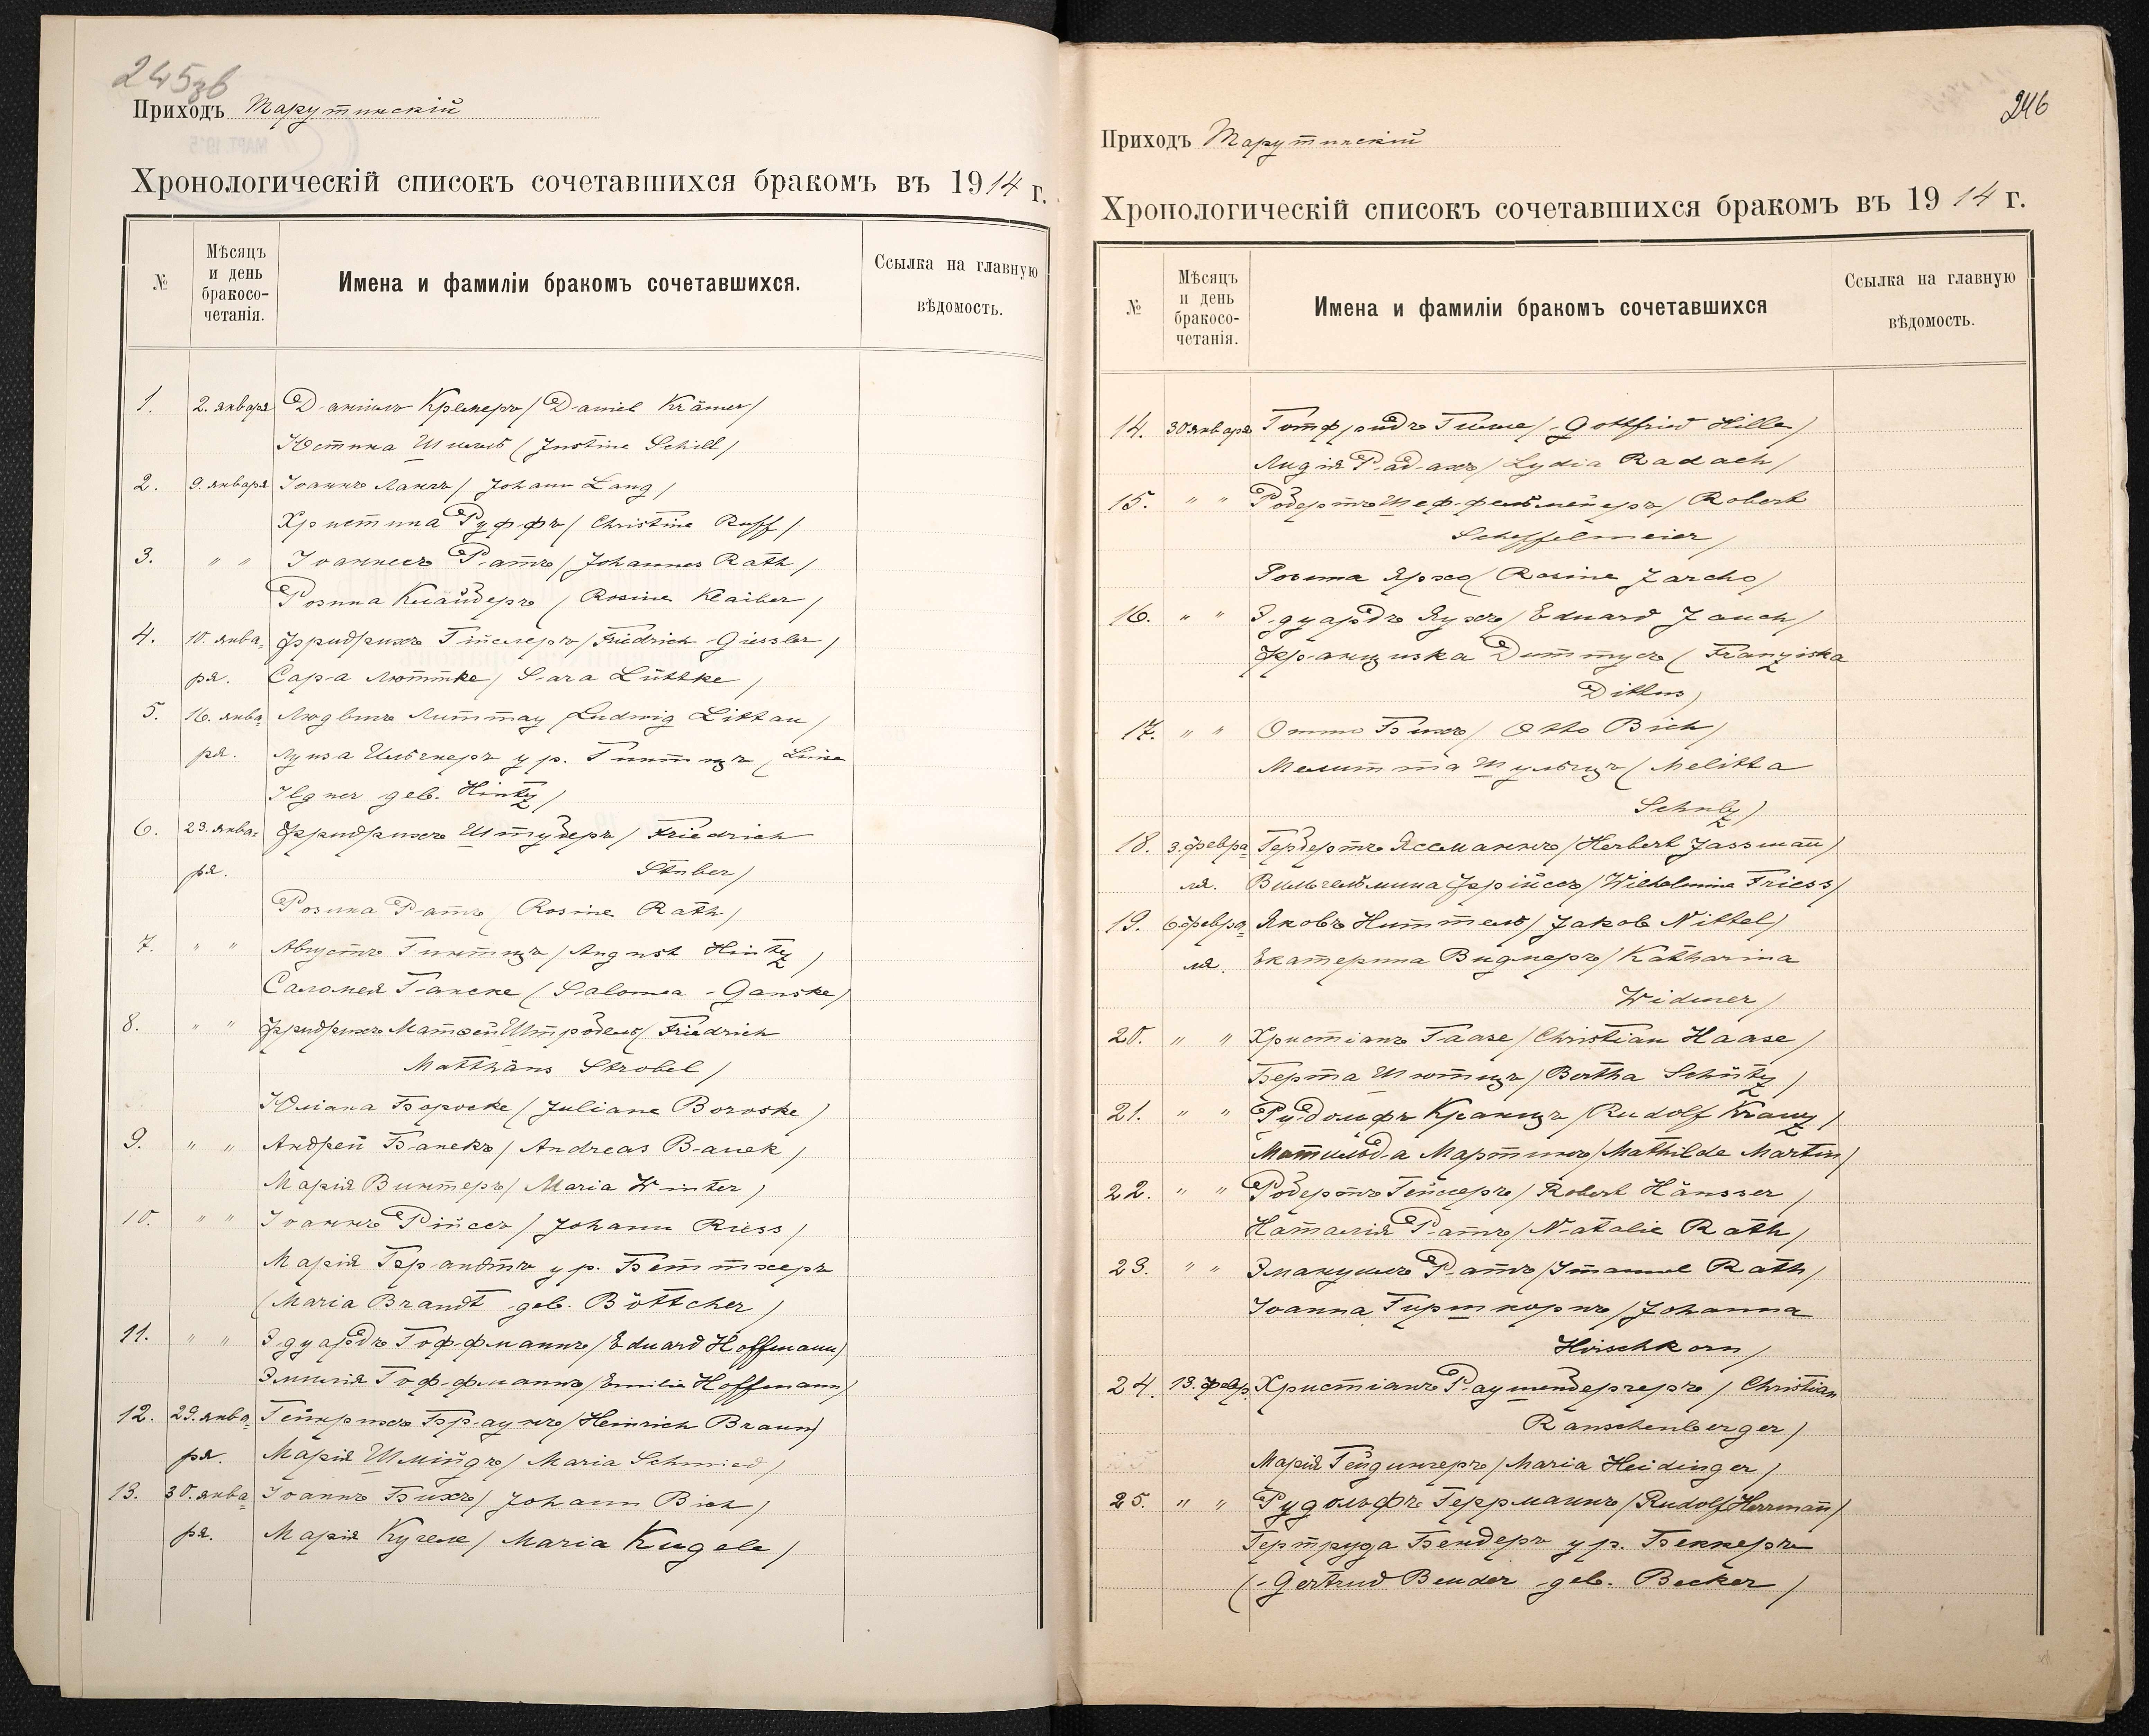 245зв
Приходъ Тарутинскій
Хронологическій списокъ сочетавшихся бракомъ въ 1914 г.
№
Мѣсяцъ
и день
бракосо-
четанія.
Имена и фамиліи бракомъ сочетавшихся.
Ссылка на главную
вѣдомость.
1. 2. января Даніилъ Кремеръ / Daniel Krämer /
Юстина Шилль ( Justine Schill )
2. 9. января Іоаннъ Лангъ / Johann Lang /
Христина Руффъ / Christine Ruff /
3. " " Іоаннесъ Ратъ / Johannes Rath /
Розина Клайберъ / Rosine Klaiber /
4. 10. янва= Фридрихъ Гислеръ / Friedrich Giessler /
ря. Сара Люттке / Sara Lüttke /
5. 16. янва= Людвигъ Литтау / Ludwig Littau /
ря. Луиза Ильгнеръ ур. Гинтцъ / Luise
Ilgner geb. Hintz /
6. 23. янва= Фридрихъ Штуберъ / Friedrich
ря. Stuber /
Розина Ратъ / Rosine Rath /
7. " " Августъ Гинтцъ / August Hintz /
Саломея Ганске ( Salomea Ganske )
8. " " Фридрихъ Матѳей Штробель / Friedrich
Matthäus Strobel /
Юліана Бороске / Juliane Boroske /
9. " " Андрей Банекъ / Andreas Banek /
Марія Винтеръ / Maria Winter /
10. " " Іоаннъ Рійсъ / Johann Riess /
Марія Брандтъ ур. Беттхеръ
( Maria Brandt geb. Böttcher )
11. " " Эдуардъ Гоффманнъ / Eduard Hoffmann /
Эмилія Гоффманнъ / Emilie Hoffmann /
12. 29. янва= Гейнрихъ Браунъ / Heinrich Braun /
ря. Марія Шмидъ / Maria Schmied /
13. 30. янва= Іоаннъ Бихъ / Johann Bich /
ря. Марія Кугеле / Maria Kugele /
246
Приходъ Тарутинскій
Хронологическій списокъ сочетавшихся бракомъ въ 1914 г.
№
Мѣсяцъ
и день
бракосо-
четанія.
Имена и фамиліи бракомъ сочетавшихся
Ссылка на главную
вѣдомость.
14. 30 января Готфридъ Гилле / Gottfried Hille /
Лидія Радахъ / Lydia Radach /
15. " " Робертъ Шеффельмейеръ / Robert
Scheffelmeier /
Розина Ярхо ( Rosine Jarcho )
16. " " Эдуардъ Яухъ / Eduard Jauch /
Франциска Диттусъ ( Franziska
Dittus )
17. " " Отто Бихъ / Otto Bich /
Мелитта Шульцъ ( Melitta
Schulz )
18. 3. февра= Гербертъ Ясманнъ / Herbert Jassmann /
ля. Вильгельмина Фрійсъ / Wilhelmine Friess /
19. 6 февра= Яковъ Ниттель / Jakob Nittel /
ля. Екатерина Видмеръ / Katharina
Widmer /
20. " " Христіанъ Гаазе / Christian Haase /
Берта Шютцъ / Bertha Schütz /
21. " " Рудольфъ Кранцъ / Rudolf Kranz /
Матильда Мартинъ / Mathilde Martin /
22. " " Робертъ Гейсеръ / Robert Häusser /
Наталія Ратъ / Natalie Rath /
23. " " Эмануилъ Ратъ / Imanuel Rath /
Іоанна Гиршкорнъ / Johanna
Hirschkorn /
24. 13. февр. Христіанъ Раушенбергеръ / Christian
Rauschenberger /
Марія Гейдингеръ / Maria Heidinger /
25. " " Рудольфъ Геррманнъ / Rudolf Herrmann /
Гертруда Бендеръ ур. Беккеръ
( Gertrud Bender geb. Becker )